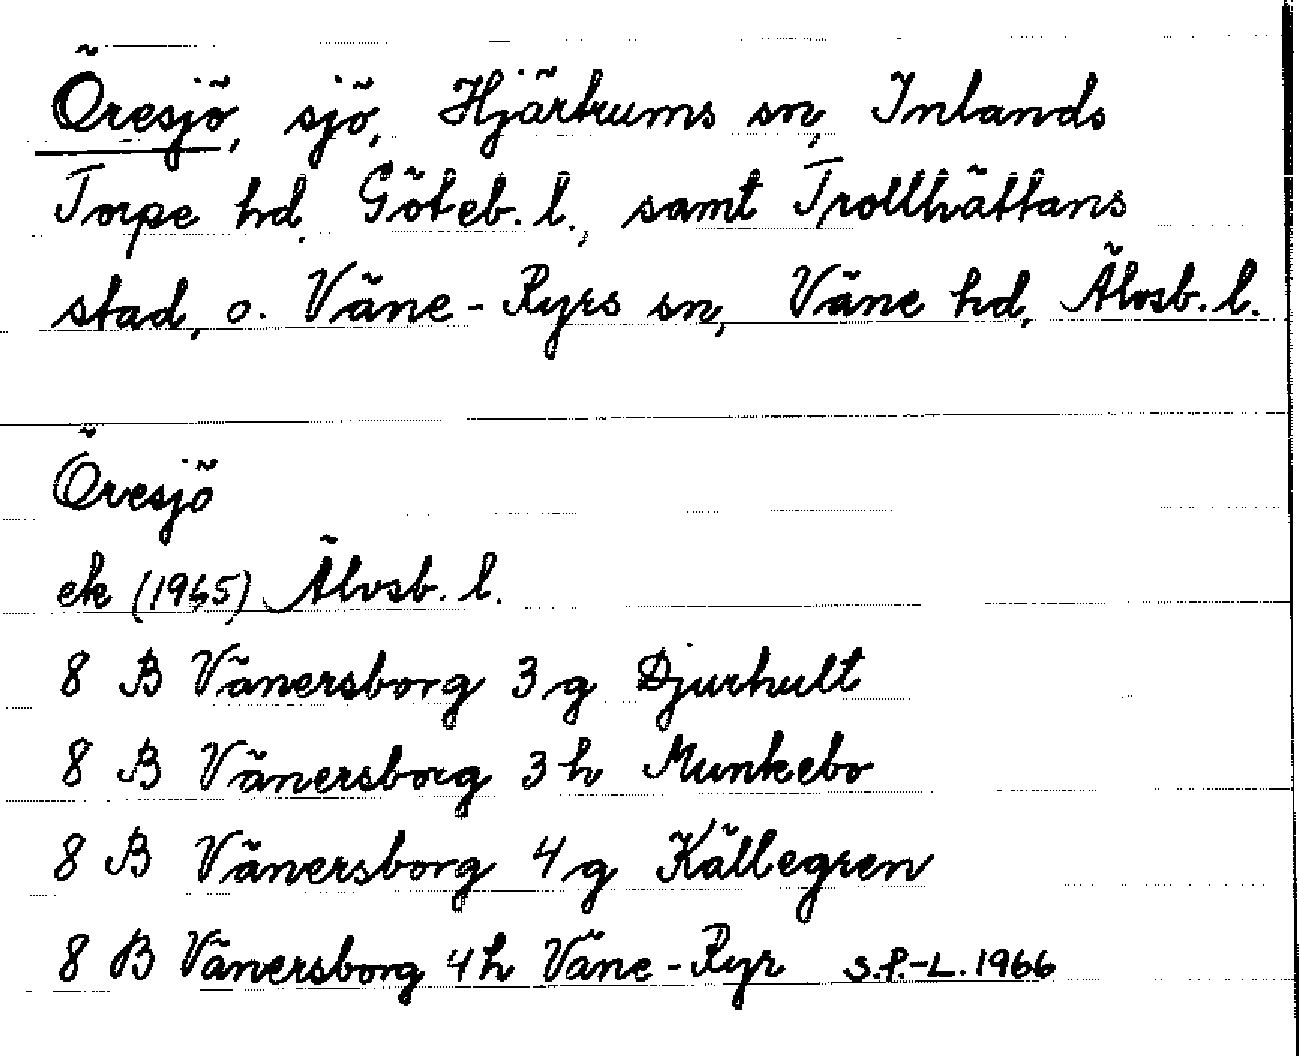 Öresjö, sjö, Hjärtrums sn, Inlands
Torpe hd, Göteb. l., samt Trollhättans
stad, o. Väne-Ryrs sn, Väne hd, Älvsb. l.
Öresjö
ek (1965) Älvsb. l.
8 B Vänersborg 3 g Djurhult
8 B Vänersborg 3 h Munkebo
8 B Vänersborg 4 g Källegren
8 B Vänersborg 4 h Väne-Ryr S.P.-L. 1966